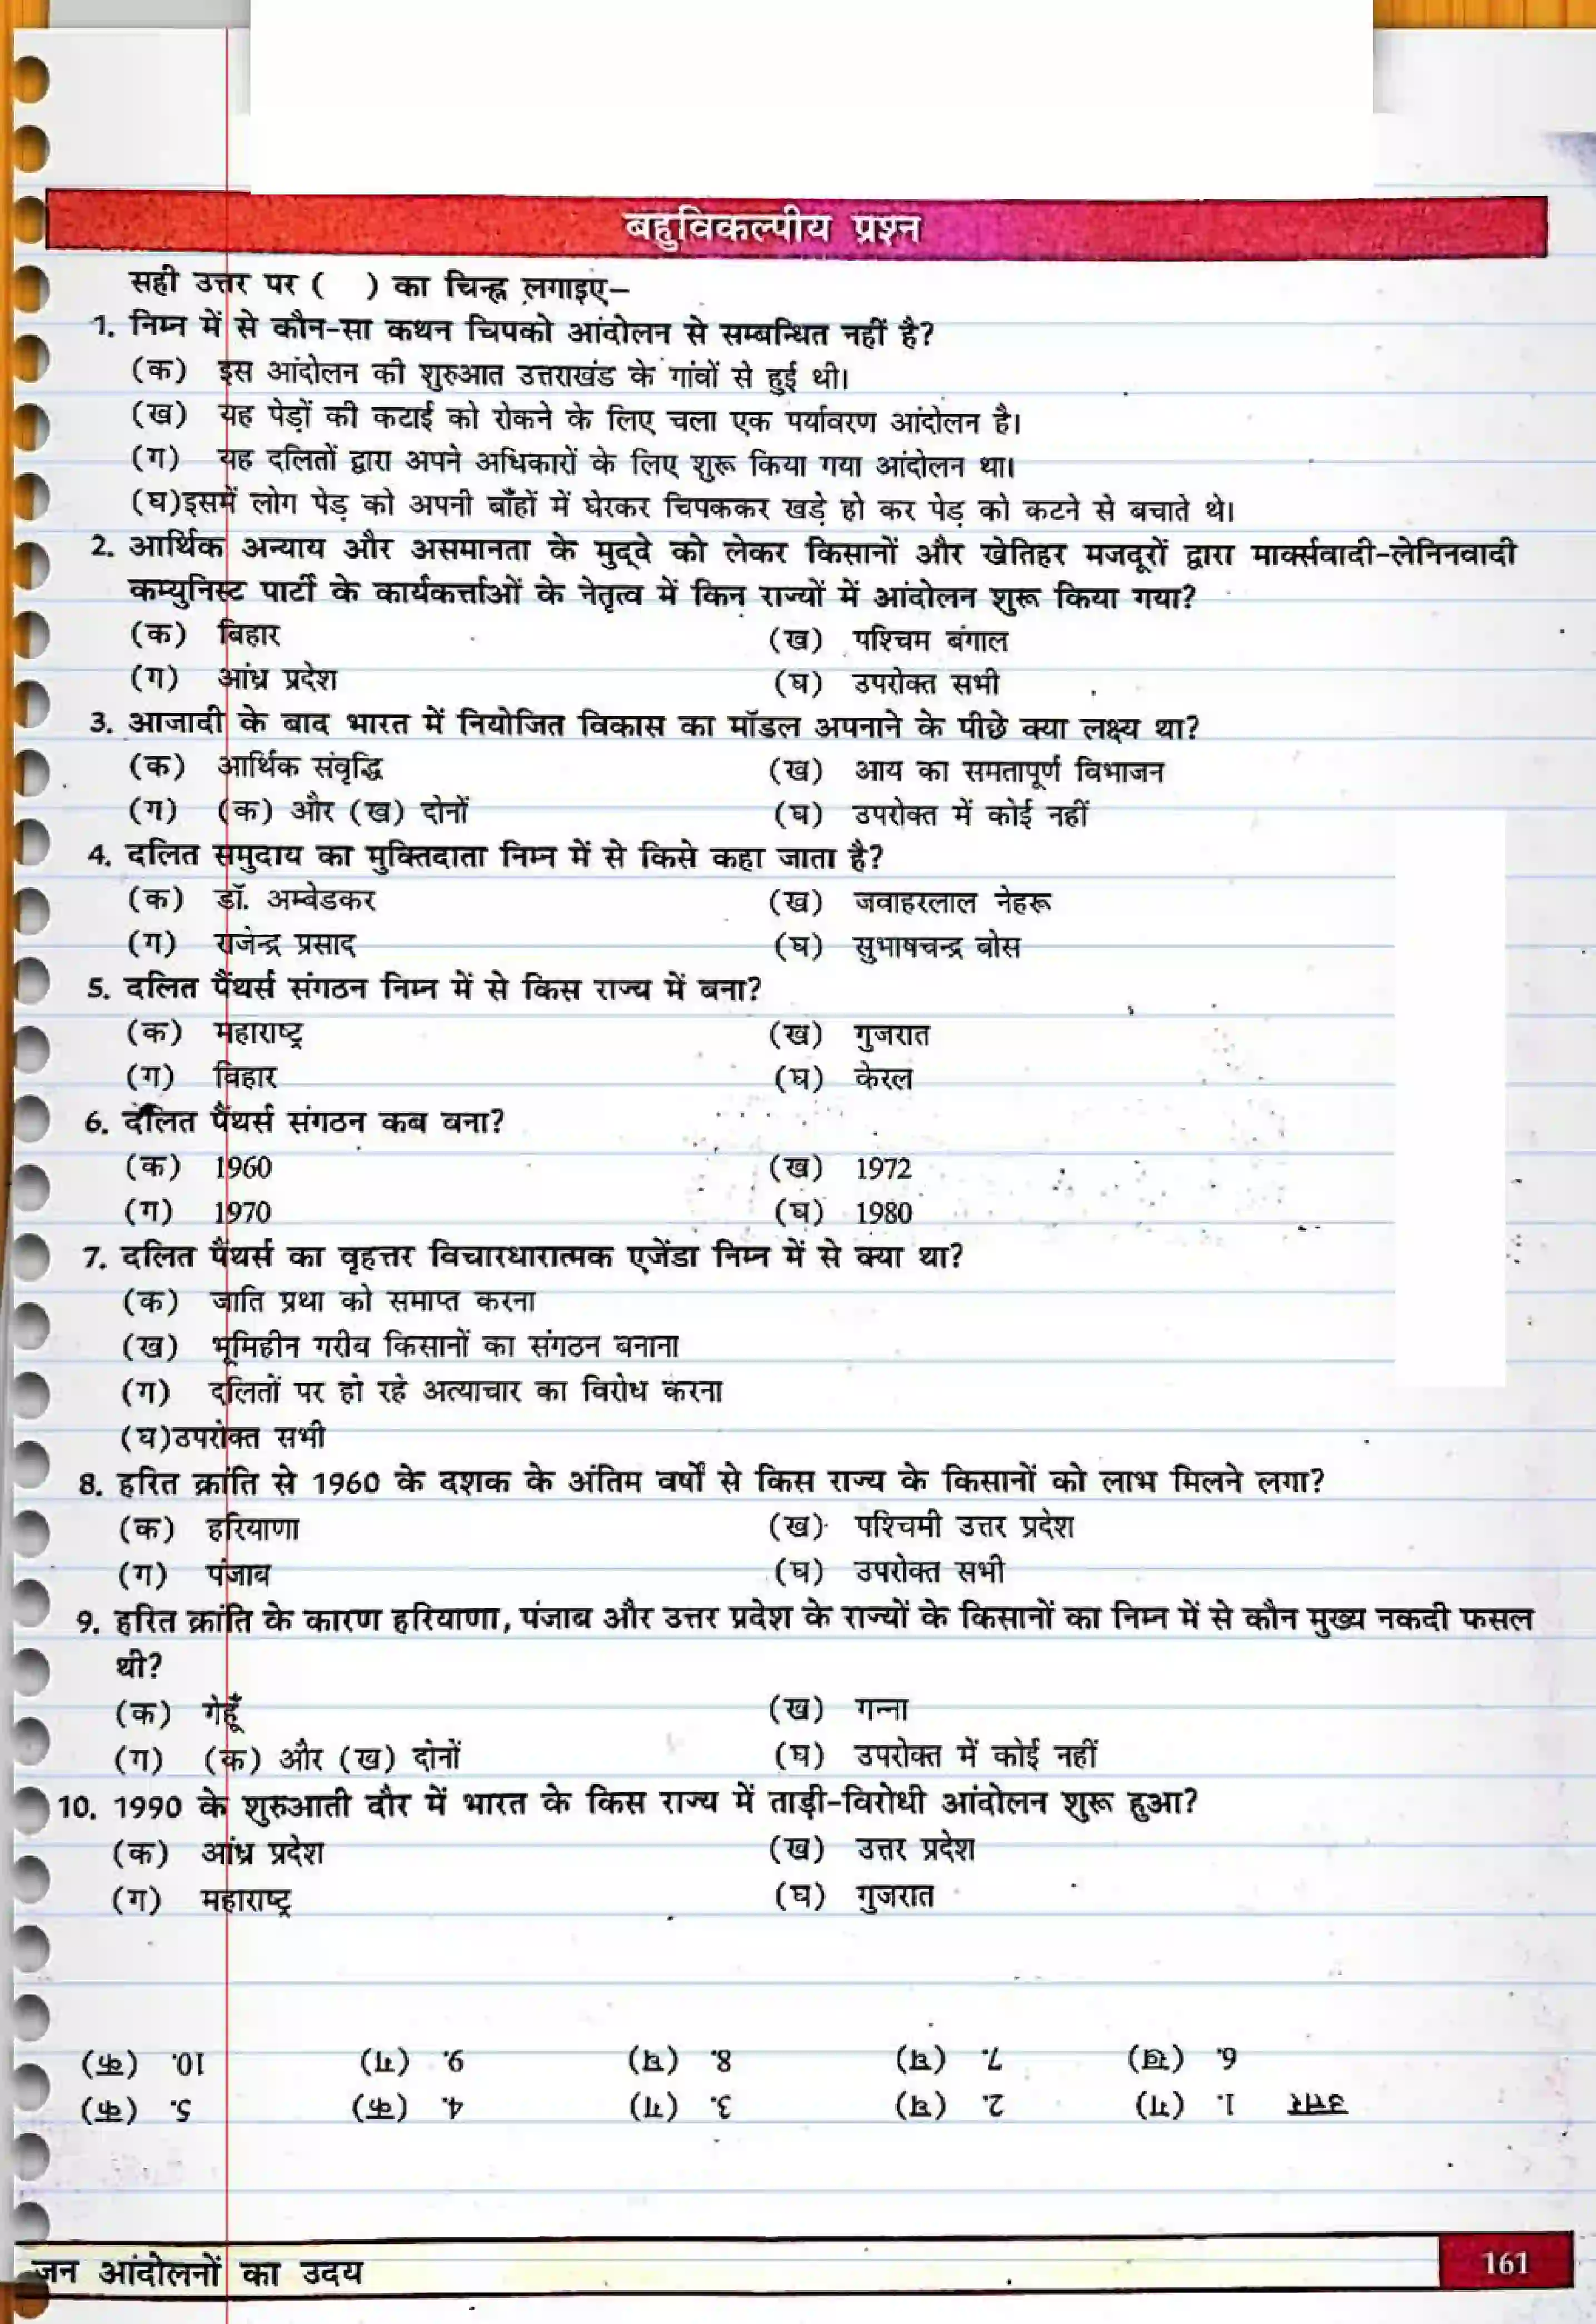 बहुविकल्पीय प्रश्न
सही उत्तर पर ( ) का चिन्ह लगाइए–
1. निम्न में से कौन-सा कथन चिपको आंदोलन से सम्बन्धित नहीं है?
(क) इस आंदोलन की शुरुआत उत्तराखंड के गांवों से हुई थी।
(ख) यह पेड़ों की कटाई को रोकने के लिए चला एक पर्यावरण आंदोलन है।
(ग) यह दलितों द्वारा अपने अधिकारों के लिए शुरू किया गया आंदोलन था।
(घ)इसमें लोग पेड़ को अपनी बाँहों में घेरकर चिपककर खड़े हो कर पेड़ को कटने से बचाते थे।
2. आर्थिक अन्याय और असमानता के मुद्दे को लेकर किसानों और खेतिहर मजदूरों द्वारा मार्क्सवादी-लेनिनवादी
कम्युनिस्ट पार्टी के कार्यकर्त्ताओं के नेतृत्व में किन राज्यों में आंदोलन शुरू किया गया?
(क) बिहार (ख) पश्चिम बंगाल
(ग) आंध्र प्रदेश (घ) उपरोक्त सभी
3. आजादी के बाद भारत में नियोजित विकास का मॉडल अपनाने के पीछे क्या लक्ष्य था?
(क) आर्थिक संवृद्धि (ख) आय का समतापूर्ण विभाजन
(ग) (क) और (ख) दोनों (घ) उपरोक्त में कोई नहीं
4. दलित समुदाय का मुक्तिदाता निम्न में से किसे कहा जाता है?
(क) डॉ. अम्बेडकर (ख) जवाहरलाल नेहरू
(ग) राजेन्द्र प्रसाद (घ) सुभाषचन्द्र बोस
5. दलित पैंथर्स संगठन निम्न में से किस राज्य में बना?
(क) महाराष्ट्र (ख) गुजरात
(ग) बिहार (घ) केरल
6. दलित पैंथर्स संगठन कब बना?
(क) 1960 (ख) 1972
(ग) 1970 (घ) 1980
7. दलित पैंथर्स का वृहत्तर विचारधारात्मक एजेंडा निम्न में से क्या था?
(क) जाति प्रथा को समाप्त करना
(ख) भूमिहीन गरीब किसानों का संगठन बनाना
(ग) दलितों पर हो रहे अत्याचार का विरोध करना
(घ)उपरोक्त सभी
8. हरित क्रांति से 1960 के दशक के अंतिम वर्षों से किस राज्य के किसानों को लाभ मिलने लगा?
(क) हरियाणा (ख) पश्चिमी उत्तर प्रदेश
(ग) पंजाब (घ) उपरोक्त सभी
9. हरित क्रांति के कारण हरियाणा, पंजाब और उत्तर प्रदेश के राज्यों के किसानों का निम्न में से कौन मुख्य नकदी फसल
थी?
(क) गेहूँ (ख) गन्ना
(ग) (क) और (ख) दोनों (घ) उपरोक्त में कोई नहीं
10. 1990 के शुरुआती दौर में भारत के किस राज्य में ताड़ी-विरोधी आंदोलन शुरू हुआ?
(क) आंध्र प्रदेश (ख) उत्तर प्रदेश
(ग) महाराष्ट्र (घ) गुजरात
उत्तर 1. (ग) 2. (घ) 3. (ग) 4. (क) 5. (क)
6. (ख) 7. (घ) 8. (घ) 9. (ग) 10. (क)
जन आंदोलनों का उदय 161